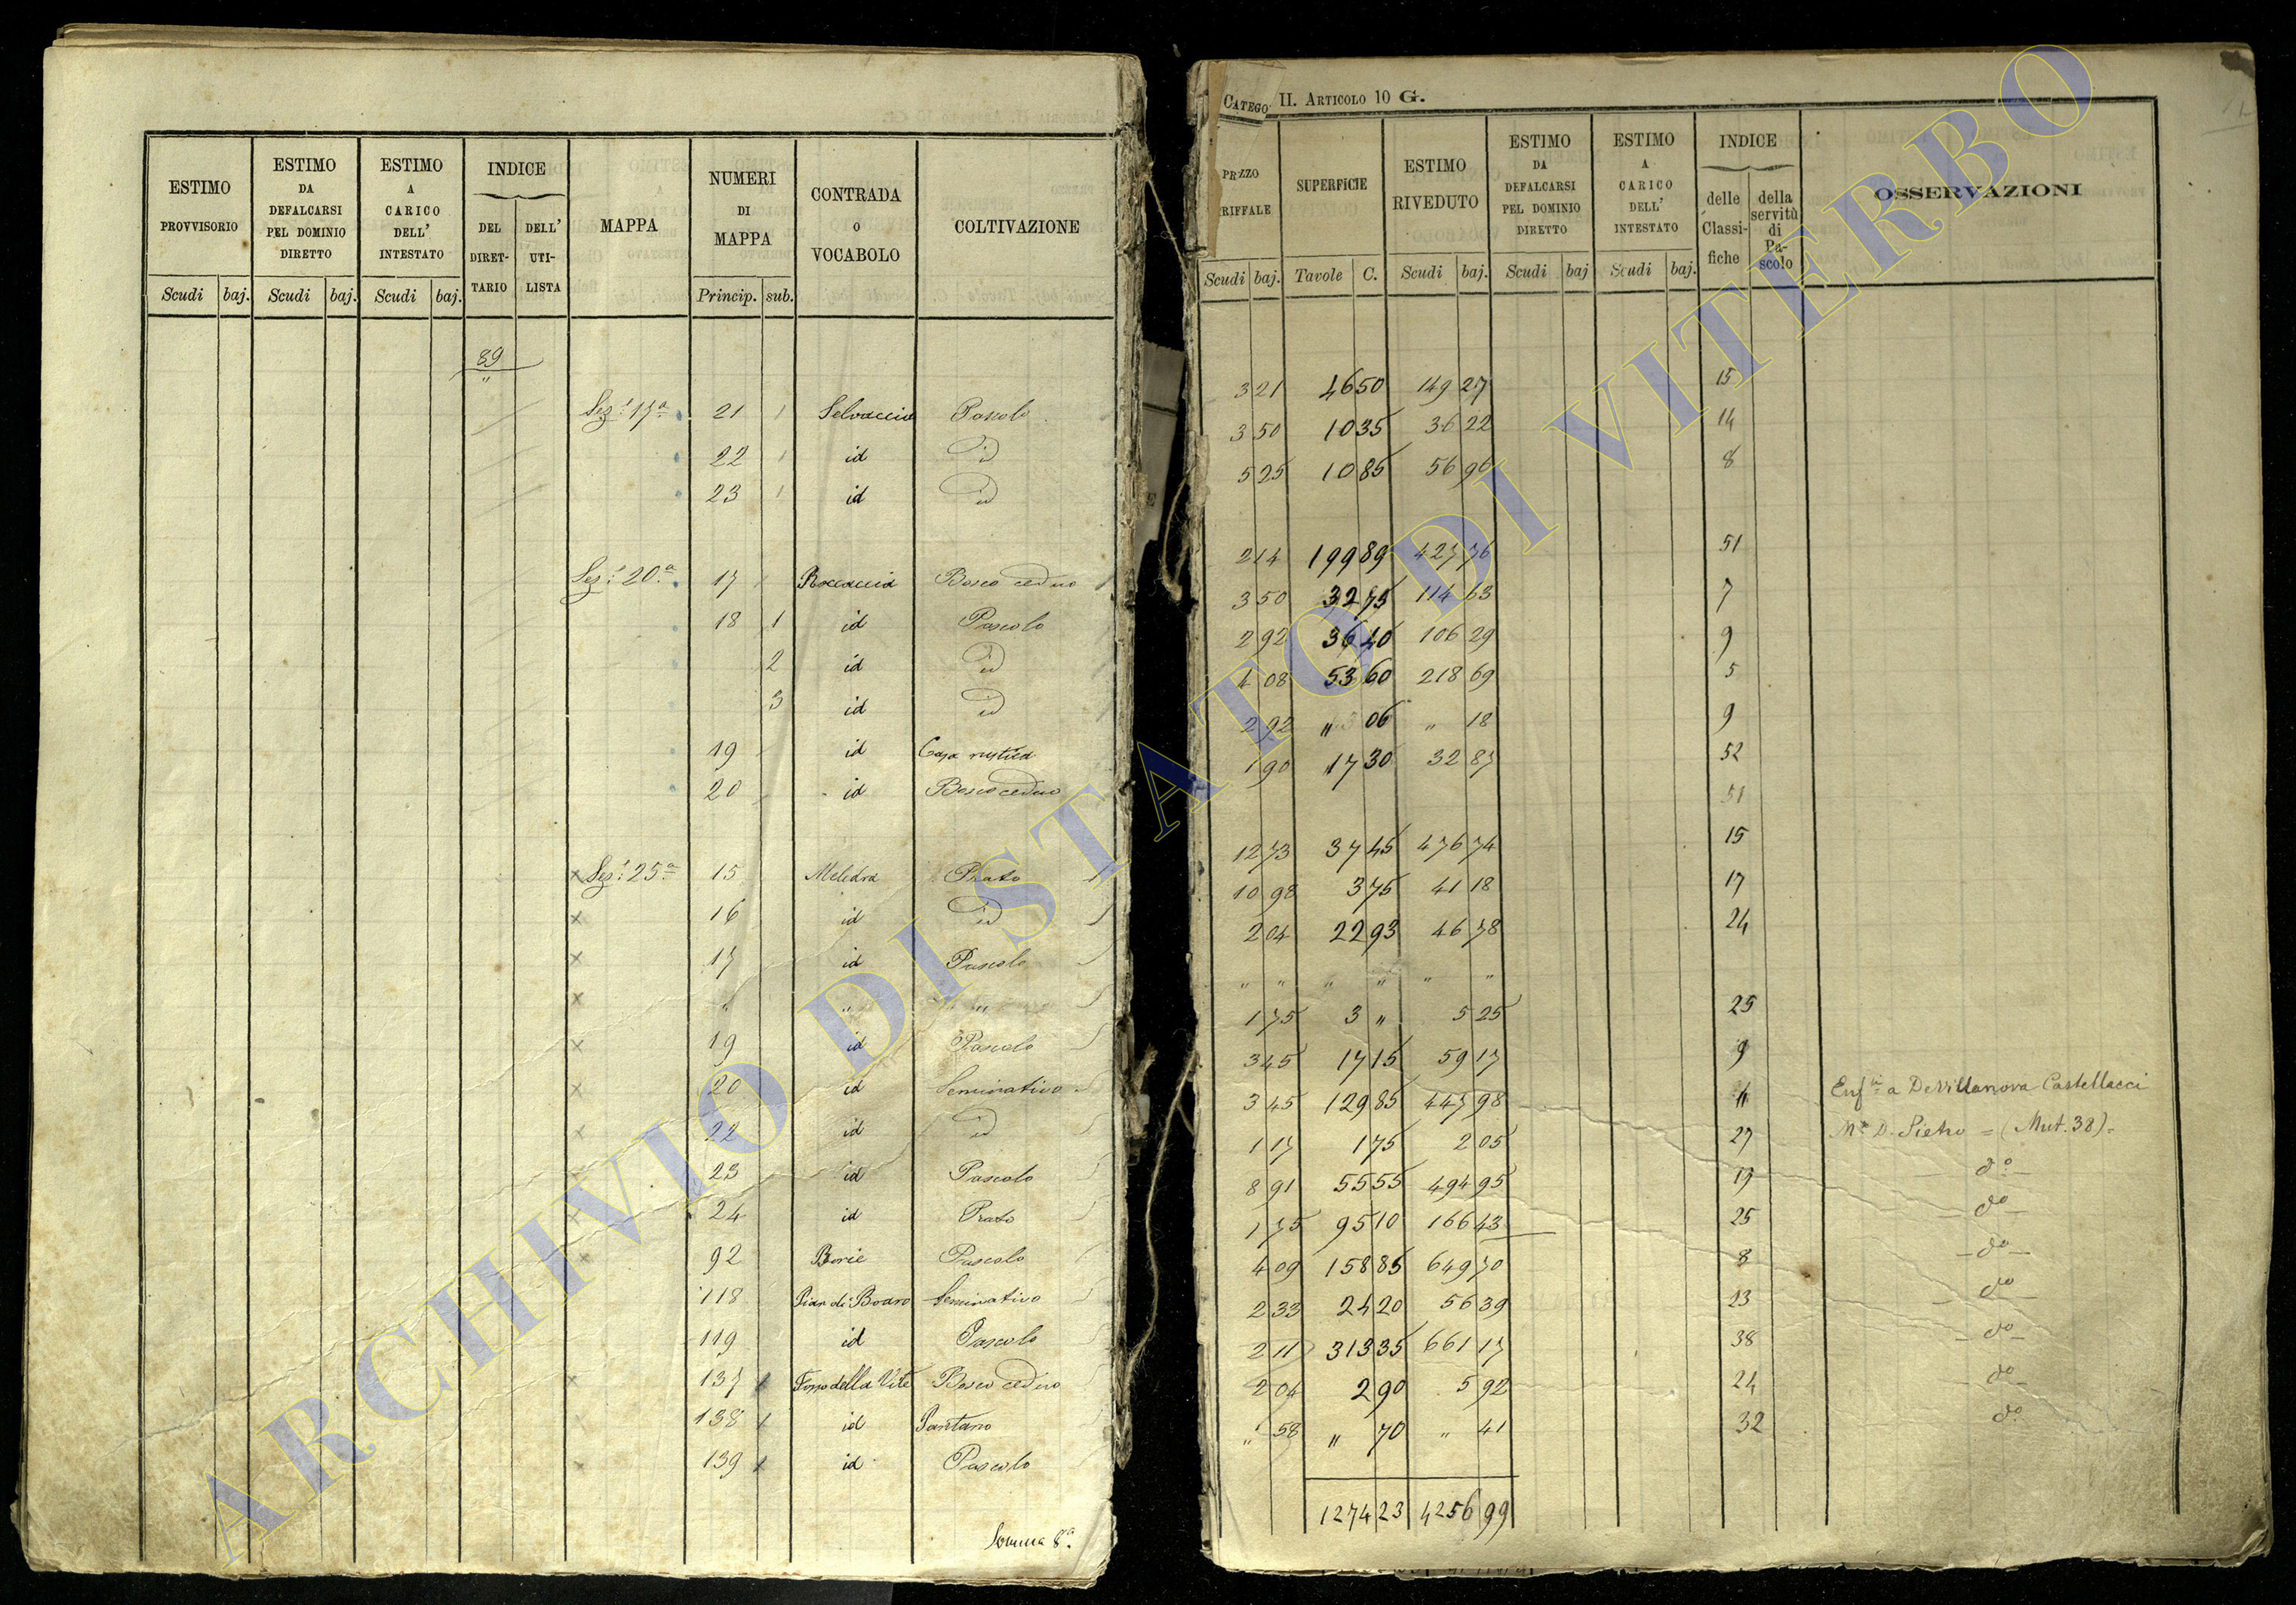 CATEGO II. ARTICOLO 10 G.
ESTIMO PROVVISORIO | ESTIMO DA DEFALCARSI PEL DOMINIO DIRETTO | ESTIMO A CARICO DELL' INTESTATO | INDICE DEL DIRETTARIO | DELL' UTILISTA | MAPPA | NUMERI DI MAPPA | CONTRADA O VOCABOLO | COLTIVAZIONE
Scudi baj. | Scudi baj. | Scudi baj. | Princip. sub.
89
"
Sez: 17a 21 1 Selvaccia Pascolo
22 1 id id
23 1 id id
Sez: 20a 17 Roccaccia Bosco ceduo
18 1 id Pascolo
2 id id
3 id id
19 id Casa rustica
20 id Bosco ceduo
x Sez: 25a 15 Meledra Prato
x 16 id id
x 17 id Pascolo
x " " "
x 19 id Pascolo
x 20 id Seminativo
x 22 id id
x 23 id Pascolo
x 24 id Prato
x 92 Borie Pascolo
118 Pian di Boaro Seminativo
119 id Pascolo
x 137 1 Fosso della Vite Bosco ceduo
x 138 1 id Pantano
x 139 1 id Pascolo
Somma 8a.
PREZZO RIFFALE | SUPERFICIE | ESTIMO RIVEDUTO | ESTIMO DA DEFALCARSI PEL DOMINIO DIRETTO | ESTIMO A CARICO DELL' INTESTATO | INDICE delle Classifiche | della servitù di Pascolo | OSSERVAZIONI
Scudi baj. | Tavole C. | Scudi baj. | Scudi baj | Scudi baj.
3 21 46 50 149 27 15
3 50 10 35 36 22 14
5 25 10 85 56 96 8
2 14 199 89 427 76 51
3 50 32 75 114 63 7
2 92 36 40 106 29 9
4 08 53 60 218 69 5
2 92 " 06 " 18 9
1 90 17 30 32 87 52
51
12 73 37 45 476 74 15
10 98 3 75 41 18 17
2 04 22 93 46 78 24
" " " " " "
1 75 3 " 5 25 25
3 45 17 15 59 17 9
3 45 129 85 447 98 11 Enfi a De Villanova Castellacci
1 17 1 75 2 05 27 Mse D. Pietro = (Mut. 38) =
8 91 55 55 494 95 19 do
1 75 95 10 166 43 25 do
4 09 158 85 649 70 8 do
2 33 24 20 56 39 23 do
2 11 313 35 661 17 38 do
2 04 2 90 5 92 24 do
" 58 " 70 " 41 32 do
1274 23 4256 99
ARCHIVIO DI STATO DI VITERBO